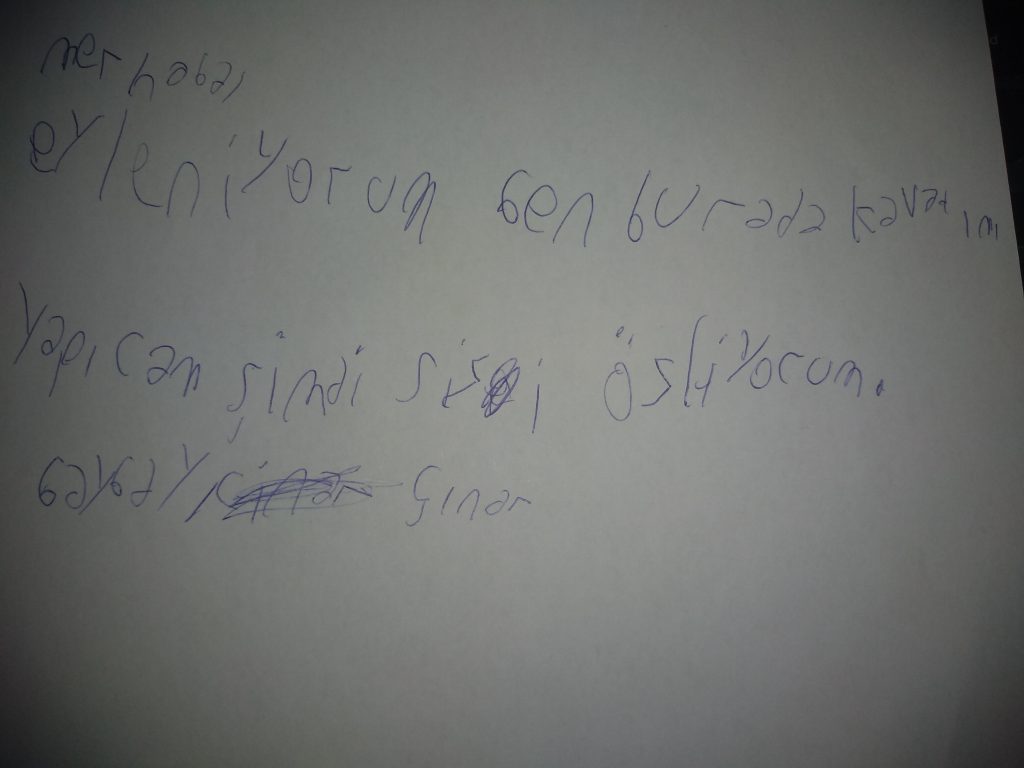 merhaba,
eyleniyorum ben burada kavatımı
yapıcam şimdi sizi ösliyorum.
baybay Çınar